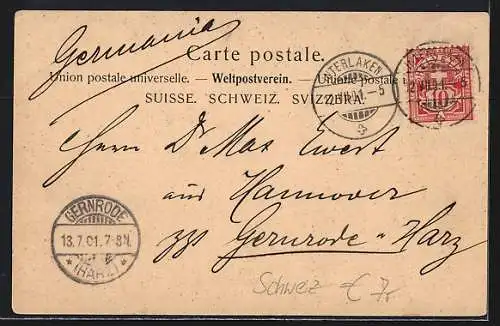 Germania
Carte postale.
Union postale universelle. — Weltpostverein. — Unione postale
SUISSE. SCHWEIZ. SVIZZERA.
INTERLAKEN
10
Herrn Dr Max Ewert
aus Hannover
zzt Gernrode-Harz
GERNRODE
13.7.01.7-8N.
* (HARZ) *
Schweiz € 7,-